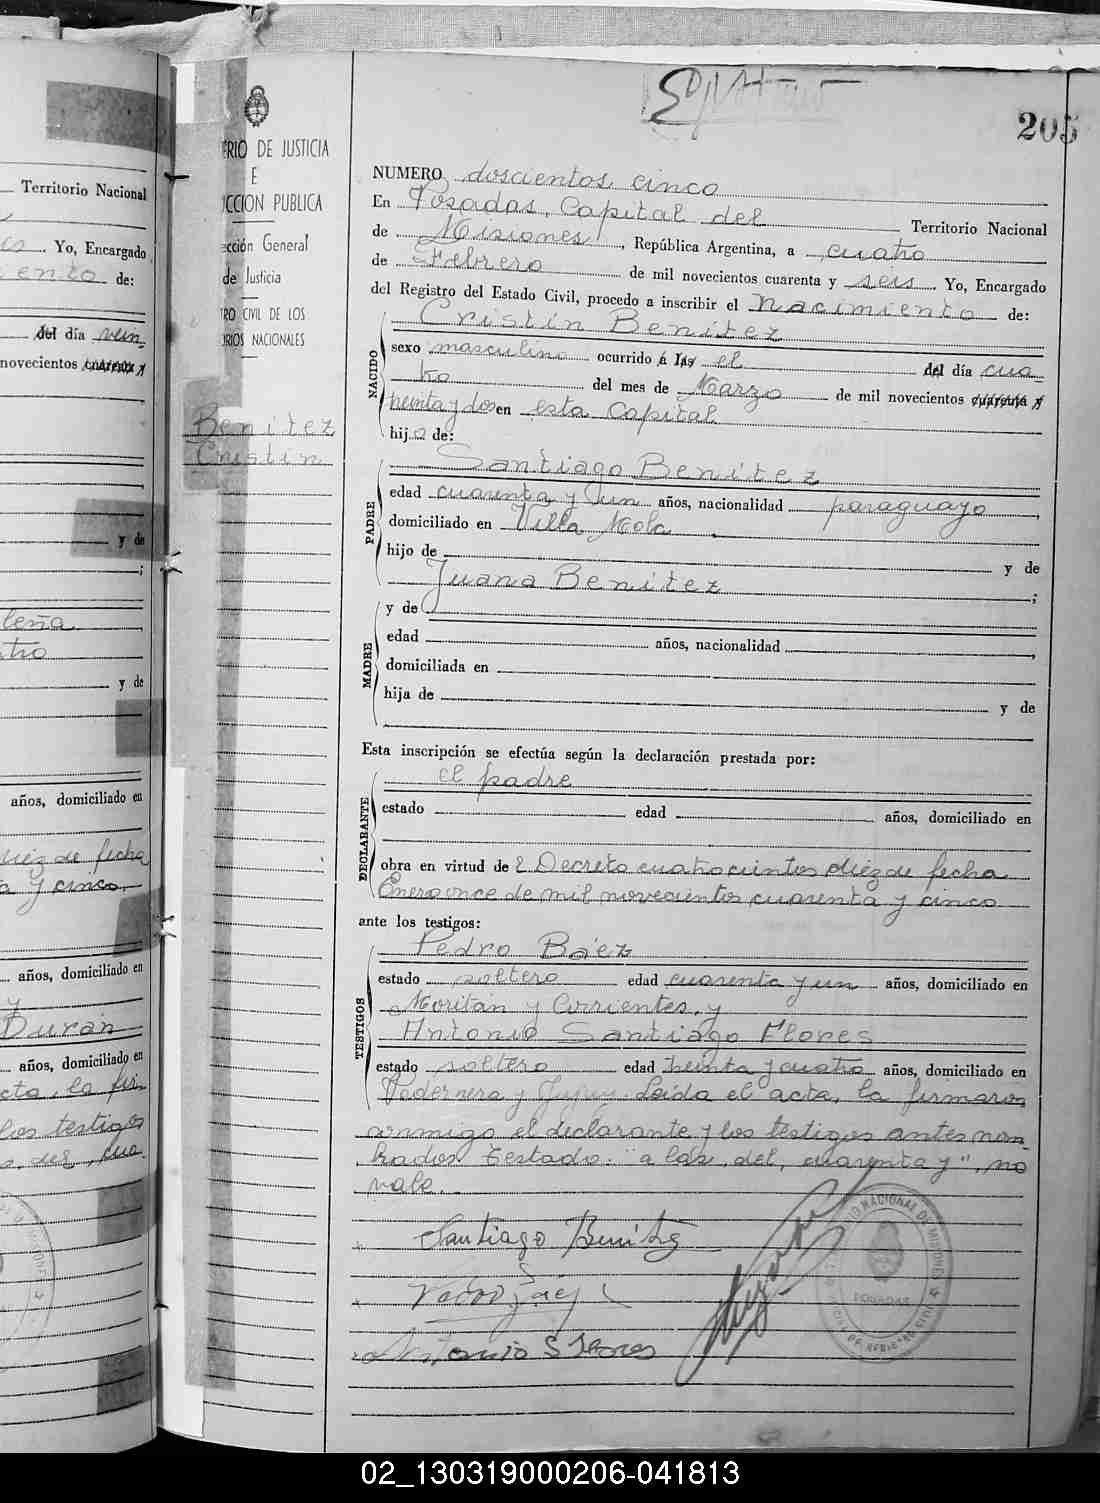 205
RIO DE JUSTICIA
E
CCION PUBLICA
cción General
de Justicia
RO CIVIL DE LOS
ORIOS NACIONALES
Benitez
Cristin
NUMERO doscientos cinco
En Posadas, Capital del Territorio Nacional
de Misiones, República Argentina, a cuatro
de Febrero de mil novecientos cuarenta y seis Yo, Encargado
del Registro del Estado Civil, procedo a inscribir el nacimiento de:
Cristin Benitez
NACIDO
sexo masculino ocurrido á las el del día cua
tro del mes de Marzo de mil novecientos cuarenta y
treinta y dos en esta Capital
hijo de:
Santiago Benitez
PADRE
edad cuarenta y un años, nacionalidad paraguayo
domiciliado en Villa Mola
hijo de y de
Juana Benitez ;
MADRE
y de
edad años, nacionalidad
domiciliada en
hija de y de
Esta inscripción se efectúa según la declaración prestada por:
el padre
DECLARANTE
estado edad años, domiciliado en
obra en virtud de l Decreto cuatrocientos diez de fecha
Enero once de mil novecientos cuarenta y cinco
ante los testigos:
Pedro Báez
TESTIGOS
estado soltero edad cuarenta y un años, domiciliado en
Moritán y Corrientes, y
Antonio Santiago Flores
estado soltero edad treinta y cuatro años, domiciliado en
Padernera y Jujuy. Leida el acta, la firmaron
conmigo el declarante y los testigos antes nom
brados. Testado: "a las, del, cuarenta y", no
vale.
Santiago Benitez
Antonio S Flores
POSADAS
Territorio Nacional
Yo, Encargado
ento de:
del día vein
novecientos cuarenta y
y de
;
leña
tro
y de
años, domiciliado en
diez de fecha
a y cinco.
años, domiciliado en
y
Durán
años, domiciliado en
cta, la fir
los testigos
02_130319000206-041813